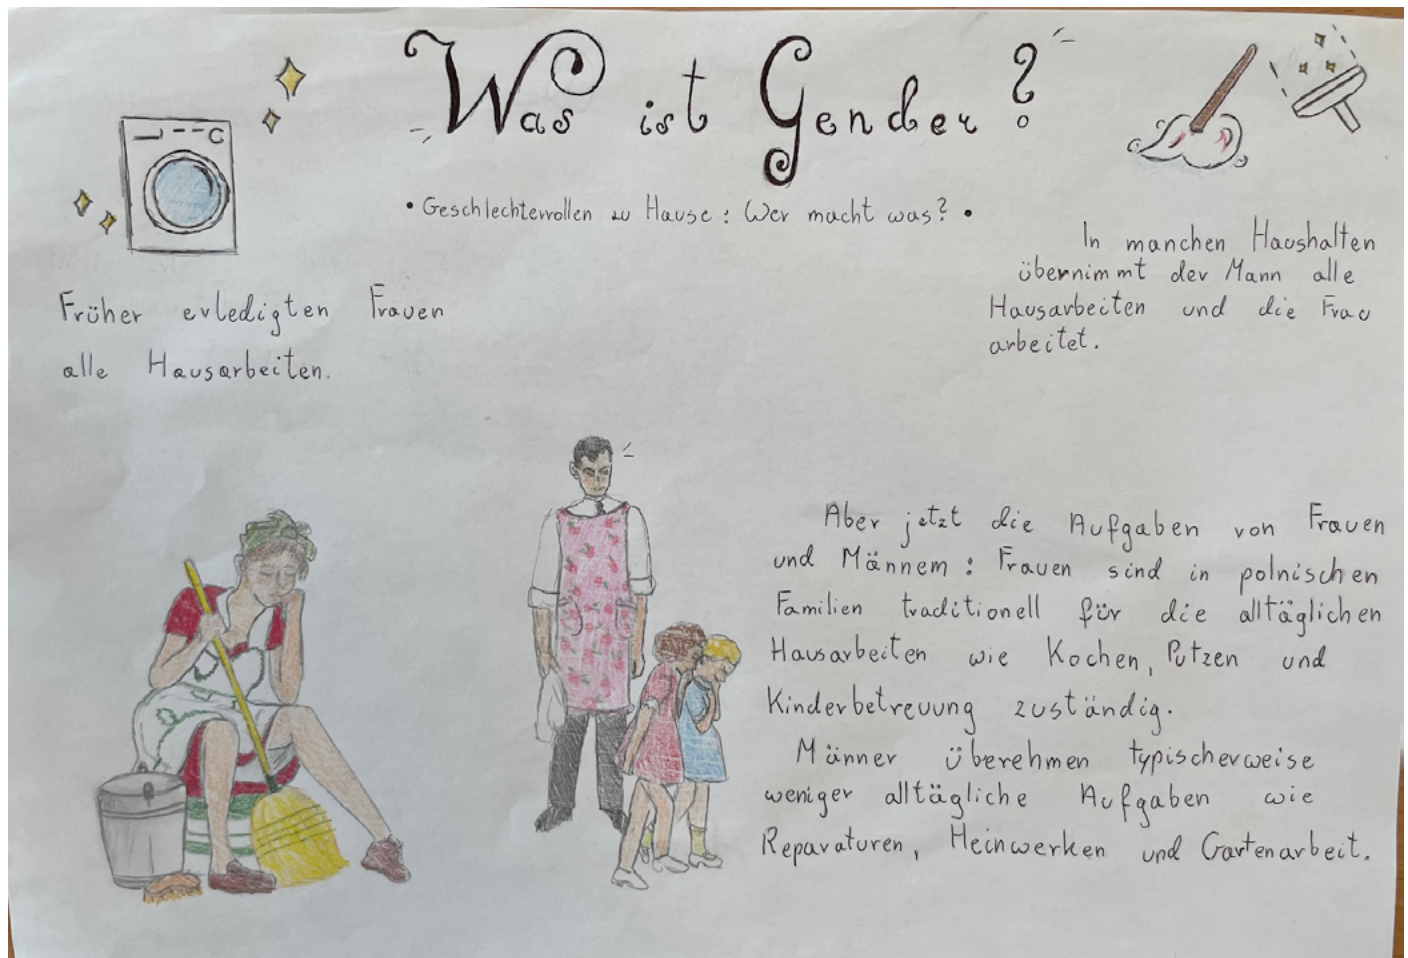 Was ist Gender?
• Geschlechterrollen zu Hause: Wer macht was? •
Früher erledigten Frauen
alle Hausarbeiten.
In manchen Haushalten
übernimmt der Mann alle
Hausarbeiten und die Frau
arbeitet.
Aber jetzt die Aufgaben von Frauen
und Männem: Frauen sind in polnischen
Familien traditionell für die alltäglichen
Hausarbeiten wie Kochen, Putzen und
Kinderbetreuung zuständig.
Männer überehmen typischerweise
weniger alltägliche Aufgaben wie
Reparaturen, Heinwerken und Gartenarbeit.